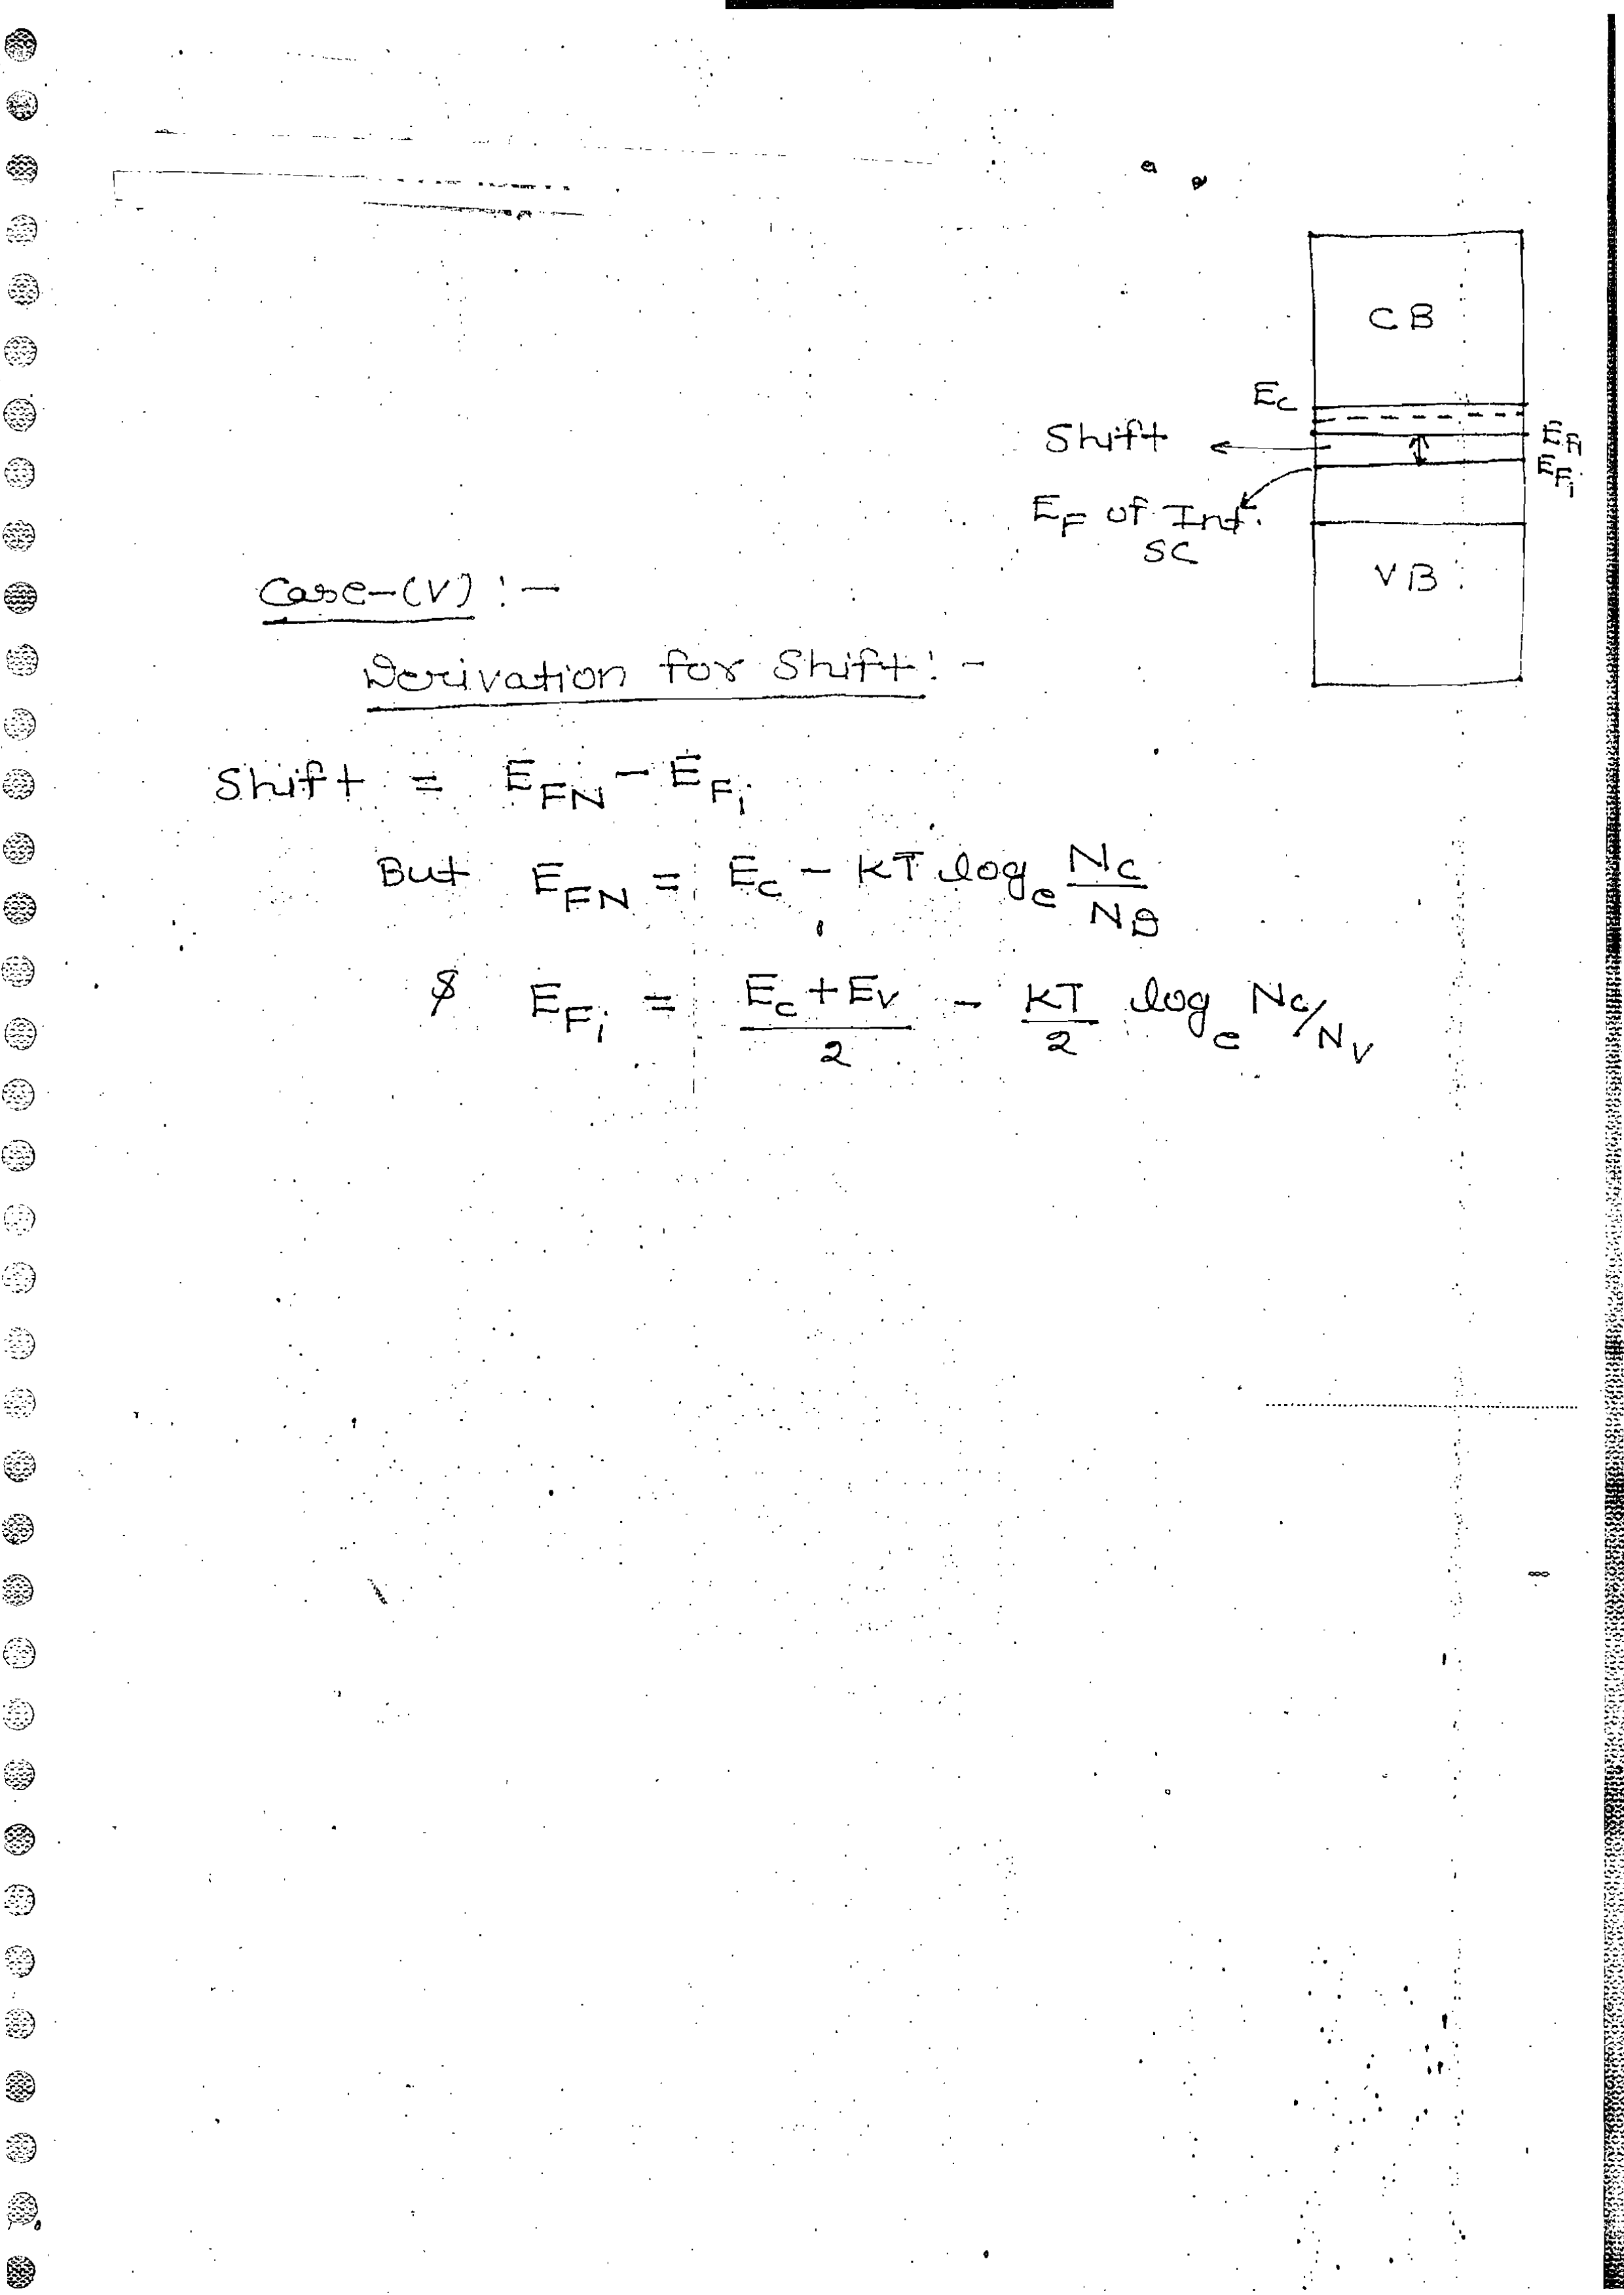 CB
Ec
Shift
EFn
EFi
EF of Int.
SC
VB
Case-(V) :-
Derivation for Shift :-
Shift = EFN - EFi
But EFN = Ec - KT loge Nc/ND
& EFi = Ec+Ev/2 - KT/2 loge Nc/Nv